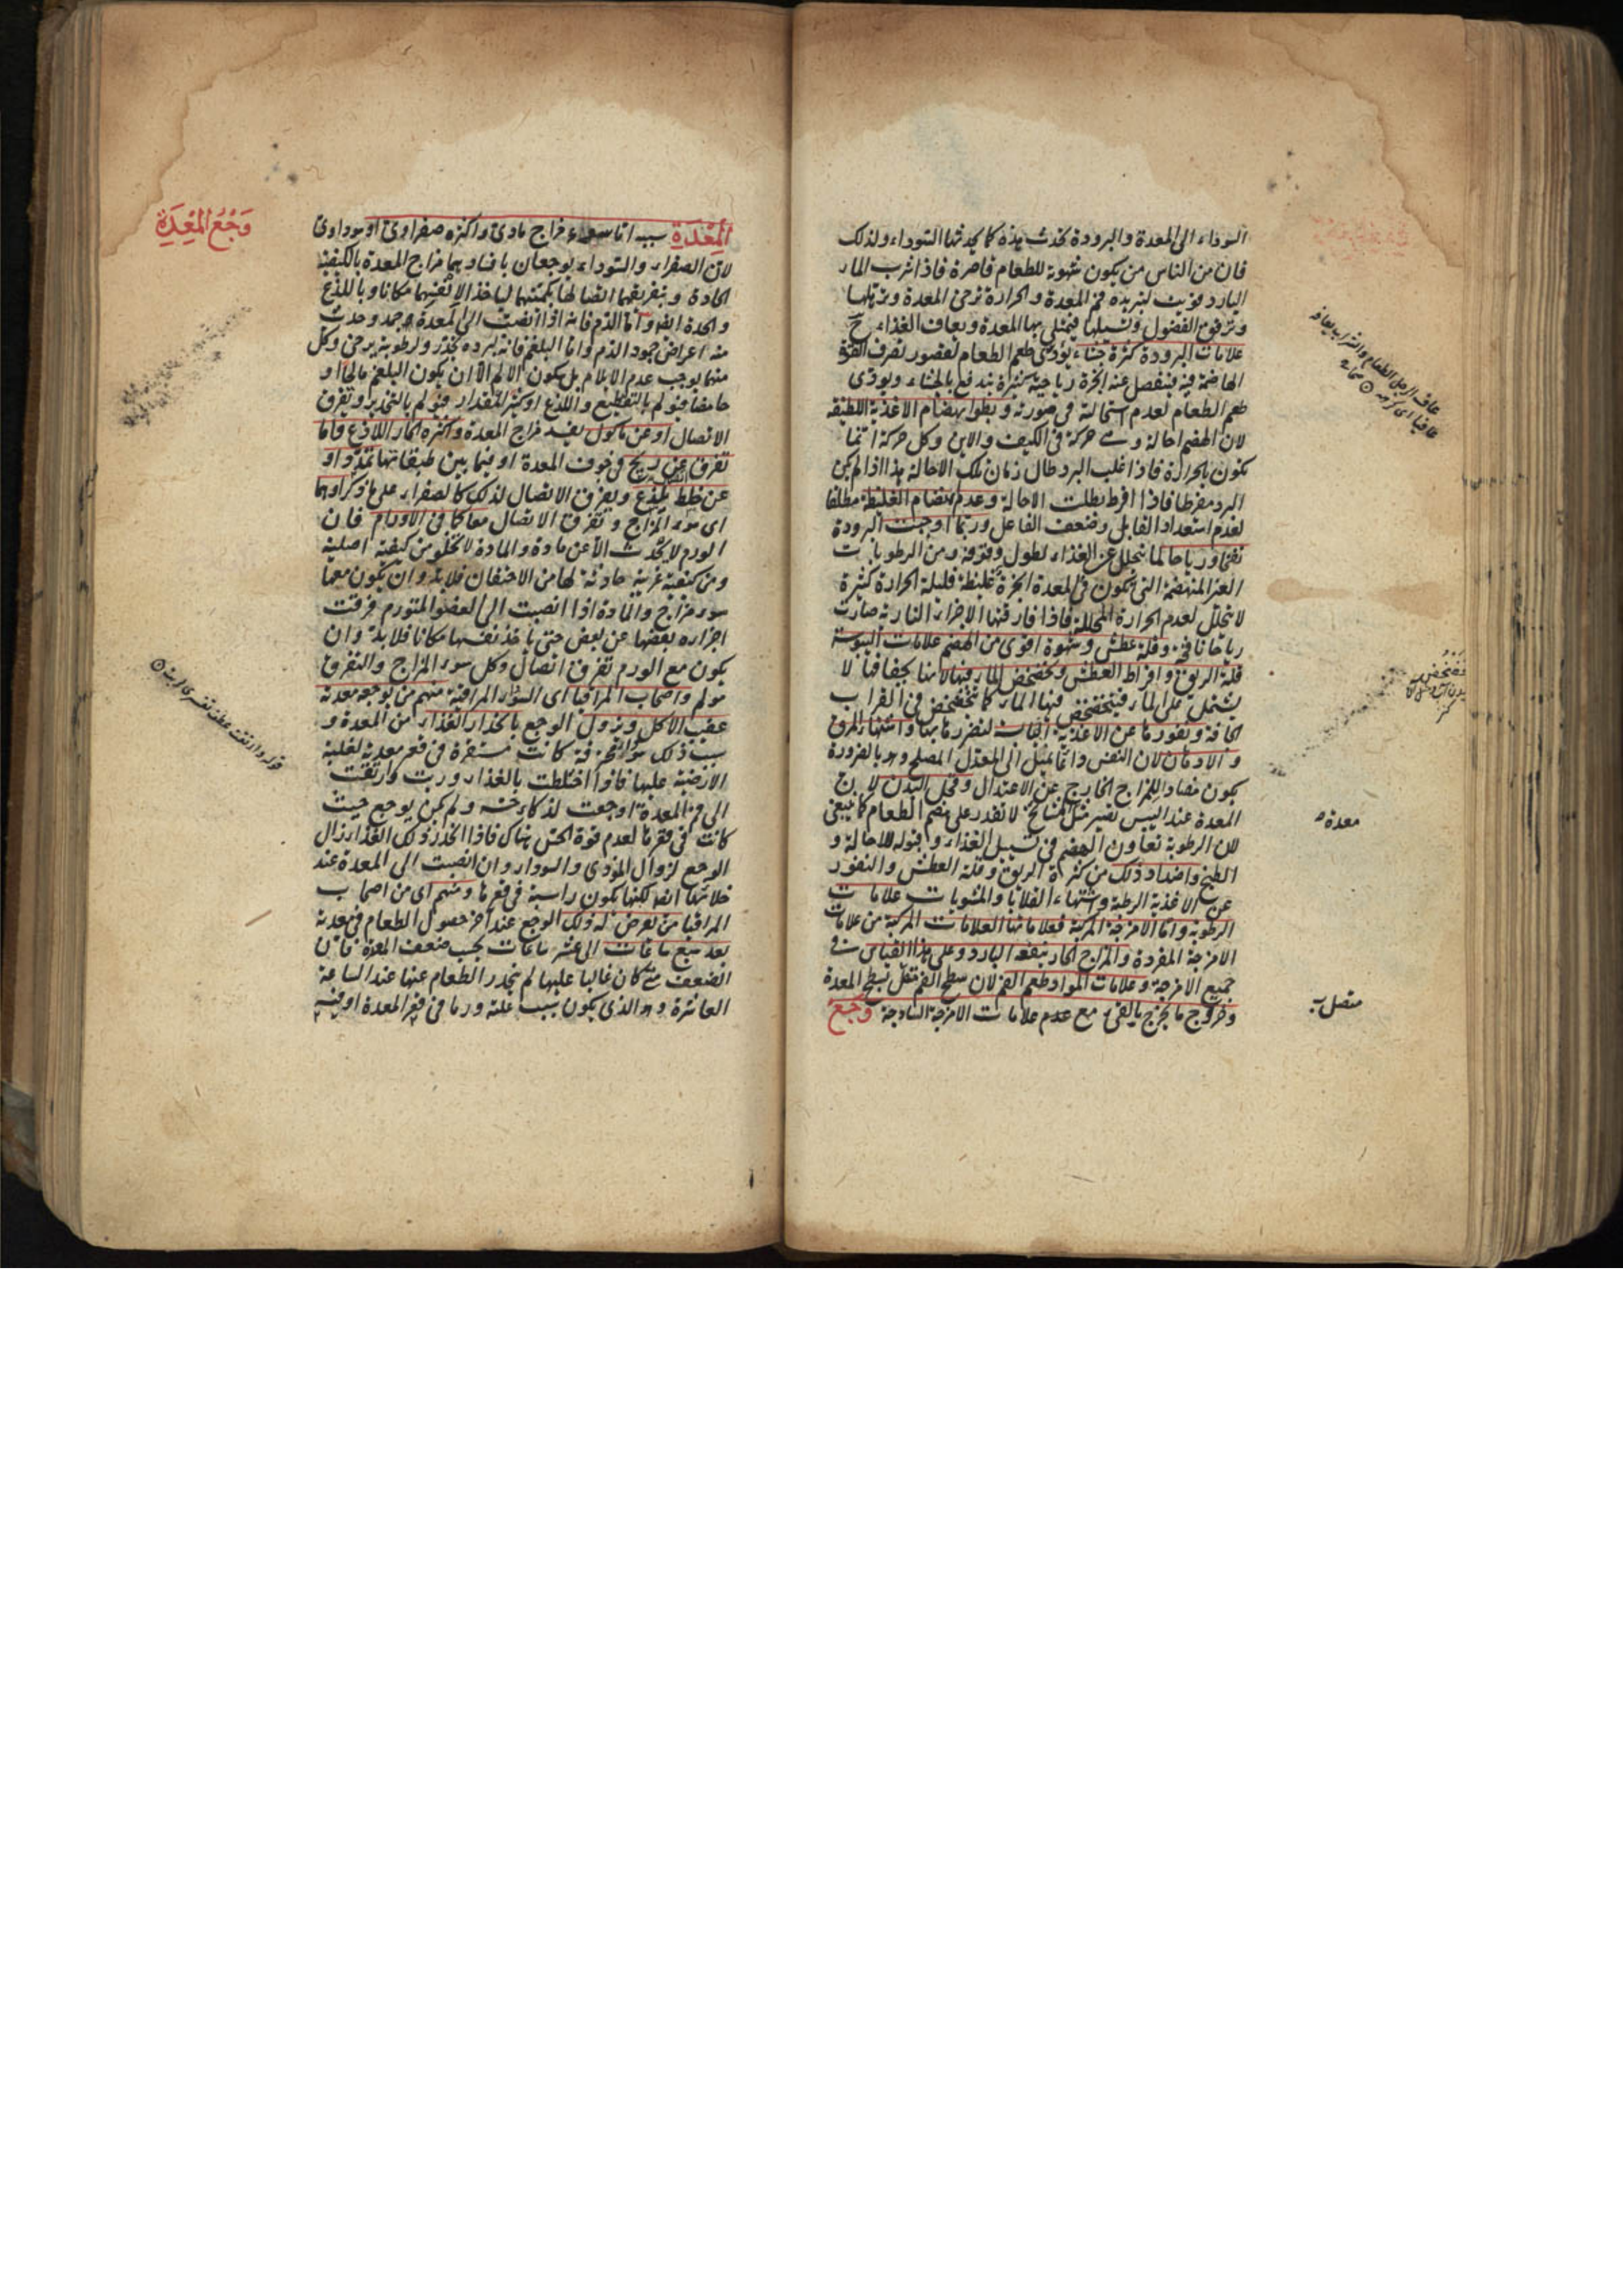 السوداء الى المعدة والبرودة تحدث هذه كما يحدثها السوداء ولذلك
فان من الناس من يكون شهوته للطعام قاصرة فاذا شرب الماء
البارد قويت لتبريده فم المعدة والحرارة ترخى المعدة وترهلها
وترقق الفضول وتسيلها فيمتلى بها المعدة ويعاف الغذاء ح
علامات البرودة كثرة جشاء يؤدى طعم الطعام لقصور تصرف القوة
الهاضمة فيه فينفصل عنه ابخرة رياحية كثيرة يندفع بالجشاء ويؤدى
طعم الطعام لعدم استحالته فى صورته وبطوء انهضام الاغذية اللطيفة
لان الهضم احالة وهى حركة فى الكيف والاين وكل حركة انما
تكون بالحرارة فاذا غلب البرد طال زمان تلك الاحالة هذا اذا لم يكن
البرد مفرطا فاذا افرط بطلت الاحالة وعدم انهضام الغليظة مطلقا
لعدم استعداد القابل وضعف الفاعل وربما اوجبت البرودة
نفخا ورياحا لما يتحلل عن الغذاء لطول وقوفه ومن الرطوبات
الغير المنهضمة التى تكون فى المعدة ابخرة غليظة قليلة الحرارة كثيرة
لا تتحلل لعدم الحرارة المحللة فاذا فارقتها الاجزاء النارية صارت
رياحا نافخة وقلة عطش وشهوة اقوى من الهضم علامات اليبوسة
قلة الريق وافراط العطش وتخضخض الماء فيها لانها بجفافها لا
تشتمل على الماء فيتخضخض فيها الماء كما يتخضخض فى القراب
الجافة ونفورها عن الاغذية اليابسة لتضررها بها واشتهاء المرق
والادهان لان النفس دائما يميل الى المعدل المصلح وهو بالضرورة
يكون مضادا للمزاج الخارج عن الاعتدال وقحل البدن لان
المعدة عند اليبس تصير مثل المشايخ لا تقدر على هضم الطعام كما ينبغى
لان الرطوبة تعاون الهضم فى تسييل الغذاء وقبوله للاحالة و
الطبخ واضداد ذلك من كثرة الريق وقلة العطش والنفور
عن الاغذية الرطبة واشتهاء القلايا والمشويات علامات
الرطوبة واما الامزجة المركبة فعلاماتها العلامات المركبة من علامات
الامزجة المفردة والمزاج الحار ينفعه البارد وعلى هذا القياس فى
جميع الامزجة وعلامات المواد طعم الفم لان سطح الفم متصل بسطح المعدة
وخروج ما يخرج بالقئ مع عدم علامات الامزجة الساذجة وجع
عاف الرجل الطعام والشراب يعافه
عافيا اى كرهه صحاح
معدة
متصل به
وجع المعدة
المعدة سببه اما سوء مزاج مادى واكثره صفراوى او سوداوى
لان الصفراء والسوداء يوجعان بافسادهما مزاج المعدة بالكيفية
الحادة وبتفريقهما اتصالها بكميتهما لياخذ الانفسهما مكانا وباللذع
والحدة ايضا واما الدم فانه اذا انصب الى المعدة جمد وحدث
منه اعراض جمود الدم واما البلغم فانه لبرده يخدر ولرطوبته يرخى وكل
منهما يوجب عدم الايلام بل يسكون الالم الا ان يكون البلغم مالحا او
حامضا فيؤلم بالتقطيع واللذع او كثير المقدار فيؤلم بالتمديد وتفرق
الاتصال او عن ماكول يفسد مزاج المعدة واكثره الحار اللاذع واما
تفرق عن ريح فى جوف المعدة او فيما بين طبقاتها تمدد او
عن خلط يلذع ويفرق الاتصال لذلك كالصفراء على ما ذكر او هما
اى سوء المزاج وتفرق الاتصال معا كما فى الاورام فان
الورم لا يحدث الا عن مادة والمادة لا تخلو من كيفية اصلية
ومن كيفية غريبة حادثة لها من الاحتقان فلا بد وان يكون معها
سوء مزاج والمادة اذا انصبت الى العضو المتورم فرقت
اجزاءه بعضها عن بعض حتى ياخذ نفسها مكانا فلا بد وان
يكون مع الورم تفرق اتصال وكل سوء المزاج والتفرق
مولم واصحاب المراقيا اى السوداء المراقية منهم من يوجعه معدته
عقيب الاكل ويزول الوجع بانحدار الغذاء من المعدة و
سبب ذلك سوداء محترقة كانت مستقرة فى قعر معدته لغلبة
الارضية عليها فاذا اختلطت بالغذاء وربت وارتقت
الى فم المعدة اوجعت لذكاء حسه ولم يكن يوجع حيث
كانت فى قعرها لعدم قوة الحس هناك فاذا انحدر ذلك الغذاء زال
الوجع لزوال المؤذى والسوداء وان انصبت الى المعدة عند
خلائها ايضا لكنها يكون راسبة فى قعرها ومنهم اى من اصحاب
المراقيا من يعرض له ذلك الوجع عند اخر حصول الطعام فى معدته
بعد سبع ساعات الى عشر ساعات بحسب ضعف المعدة فان
الضعف متى كان غالبا عليها لم ينحدر الطعام عنها عند الساعة
العاشرة وهو الذى يكون سبب علته ورما فى قعر المعدة او فيه
قوله وارتقت عطف تفسير لربت